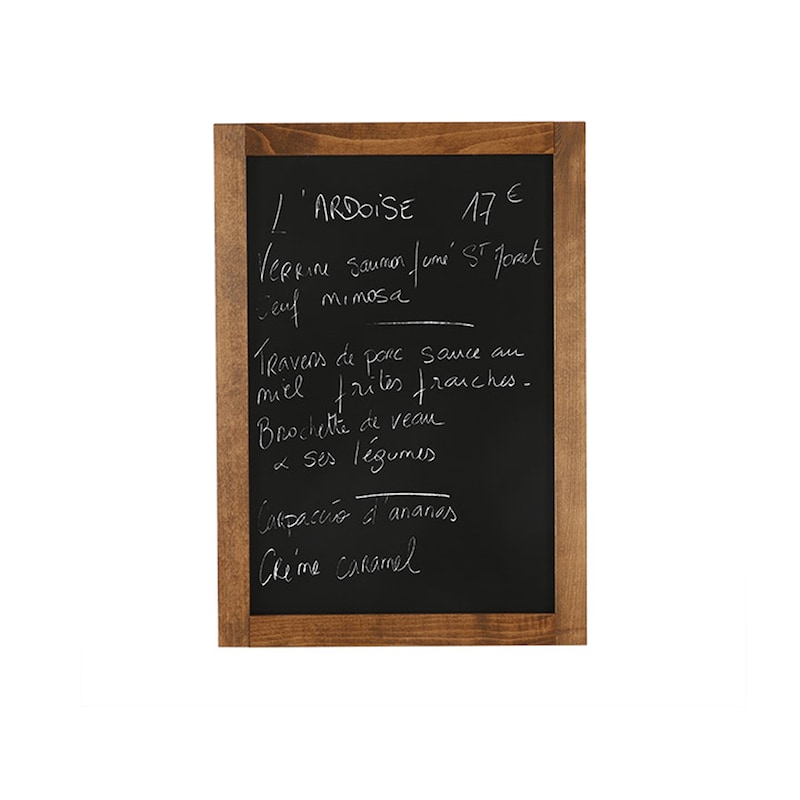 L'ARDOISE 17 €
Verrine saumon fumé St Moret
Oeuf mimosa
Travers de porc sauce au
miel frites fraiches -
Brochette de veau
& ses légumes
Carpaccio d'ananas
Crème caramel